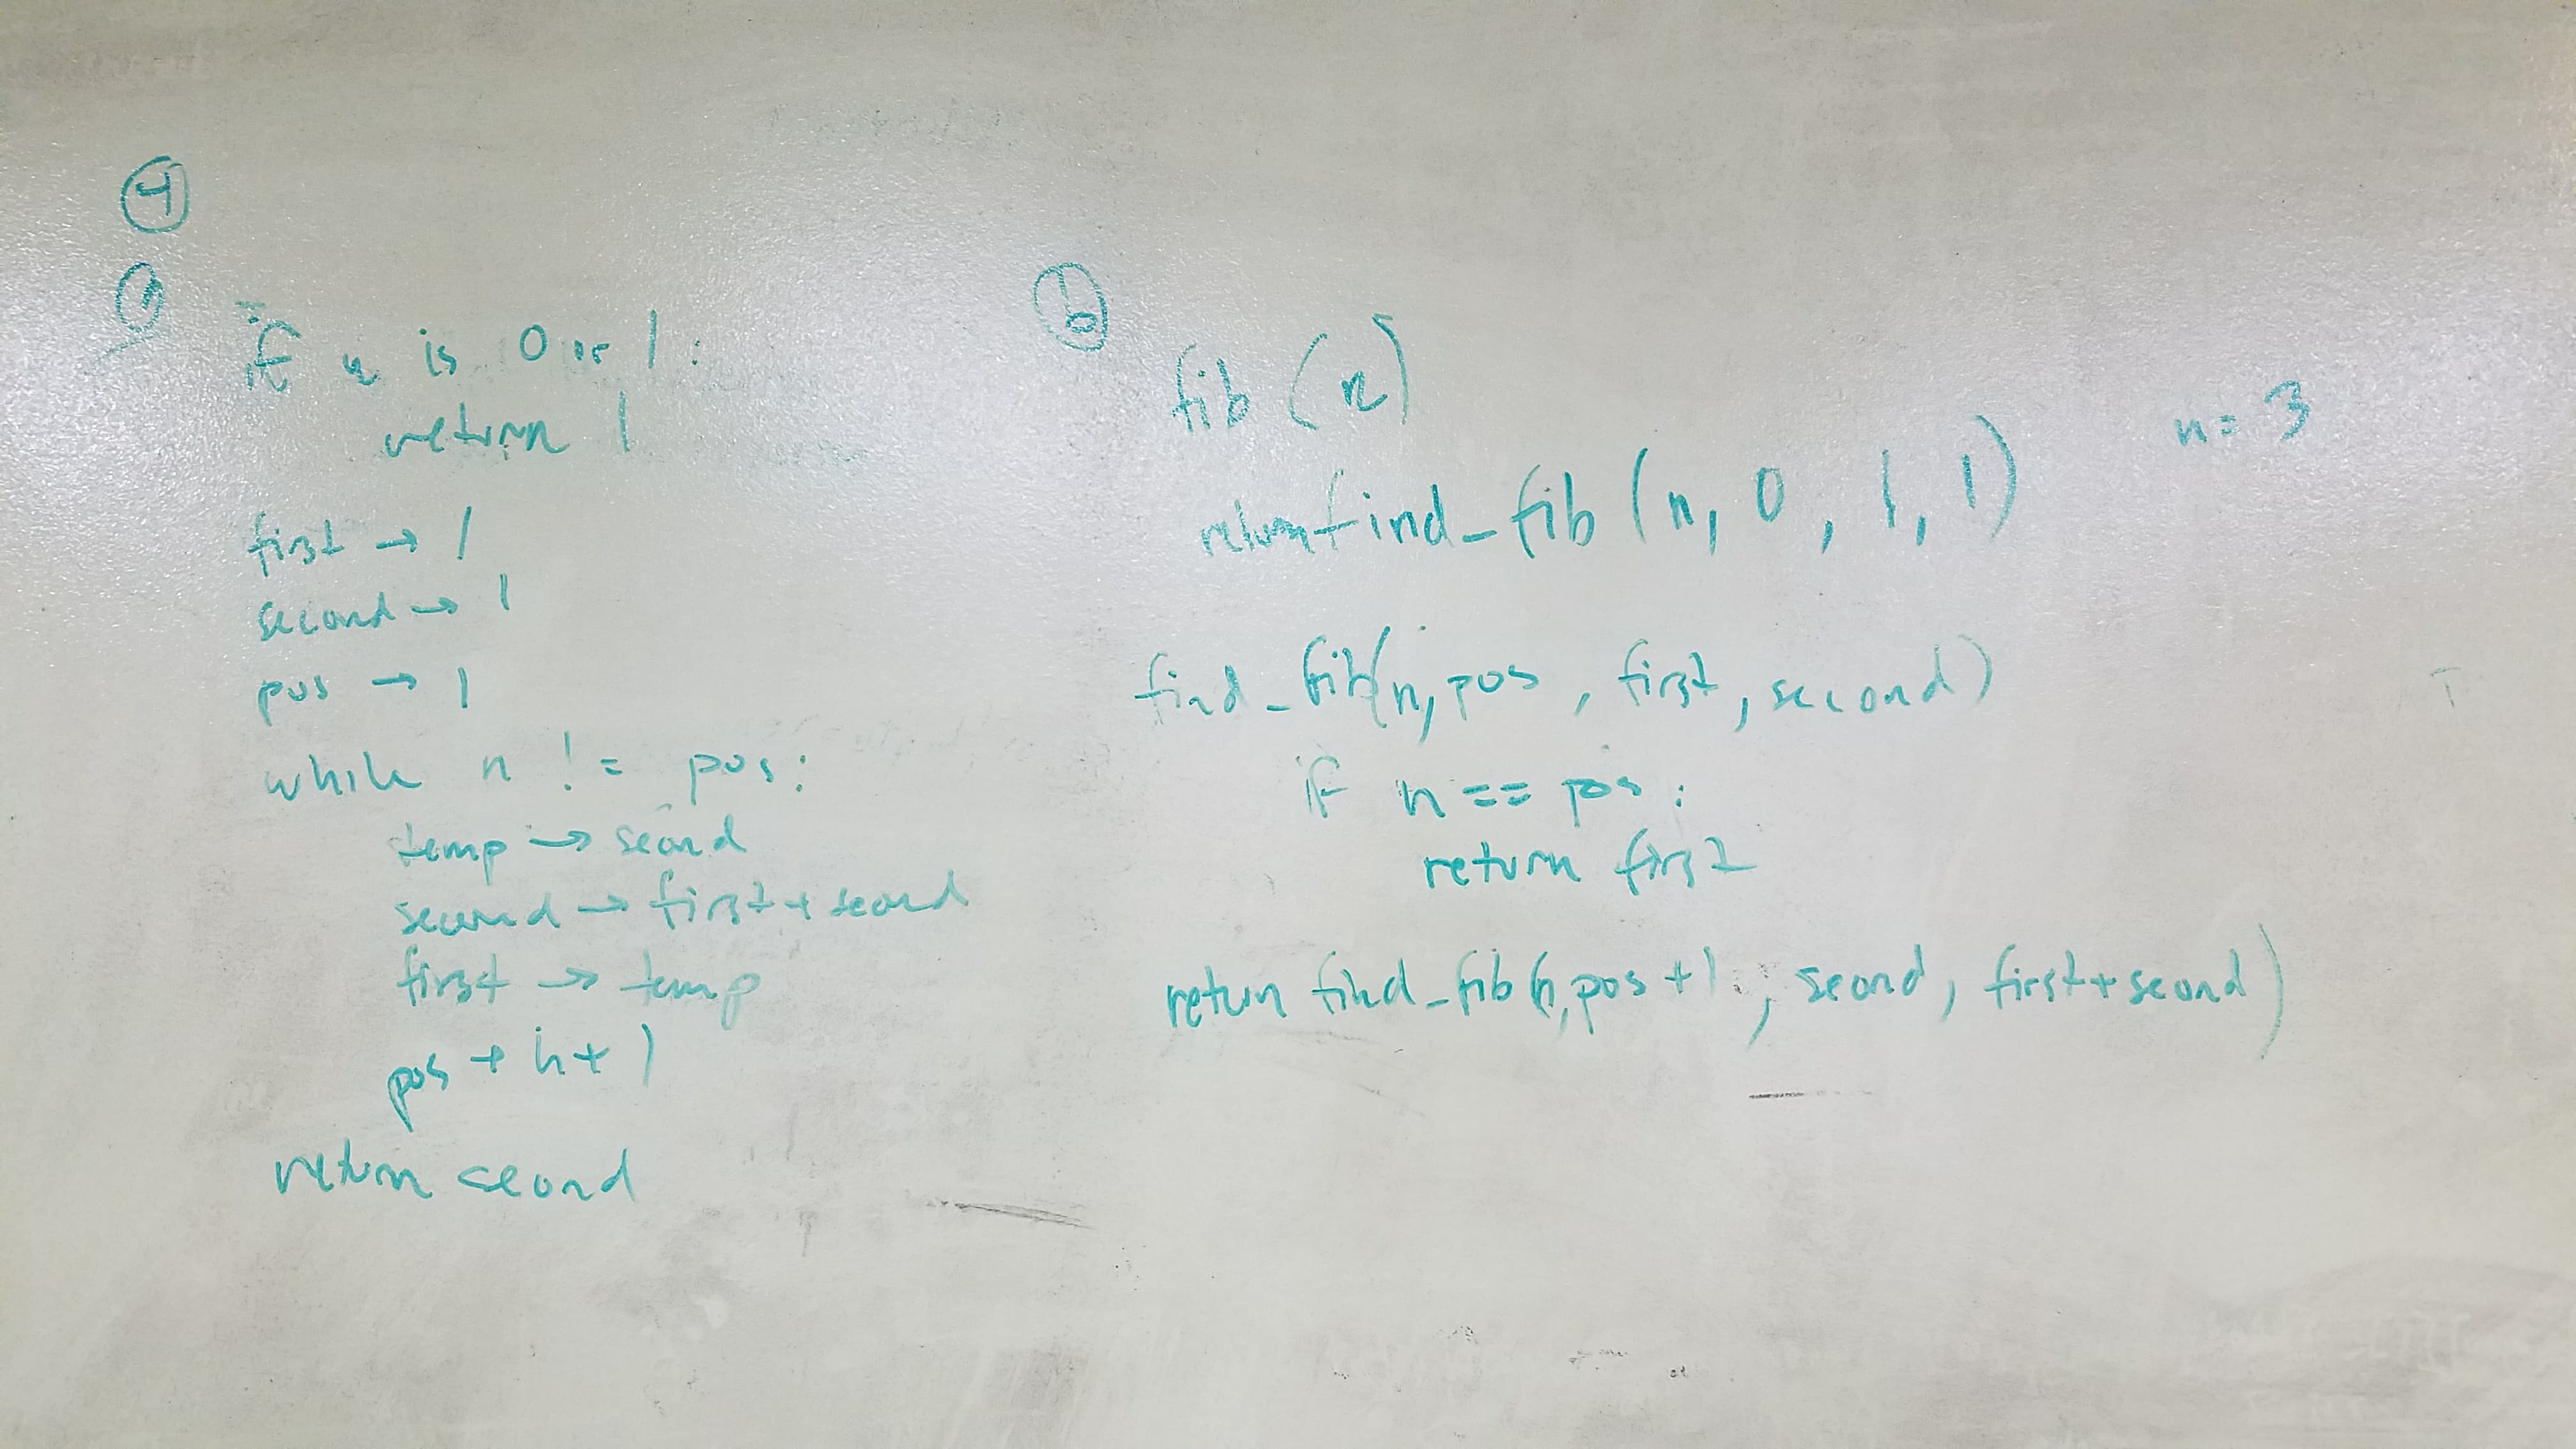 4
if n is 0 or 1:
return 1
first → 1
second → 1
pos → 1
while n != pos:
temp → seond
second → first + seond
first → temp
pos + n + 1
return seond
b
fib (n)
return find_fib (n, 0, 1, 1)
n = 3
find_fib(n, pos, first, second)
if n == pos:
return first
return find_fib(n, pos + 1, seond, first + seond)